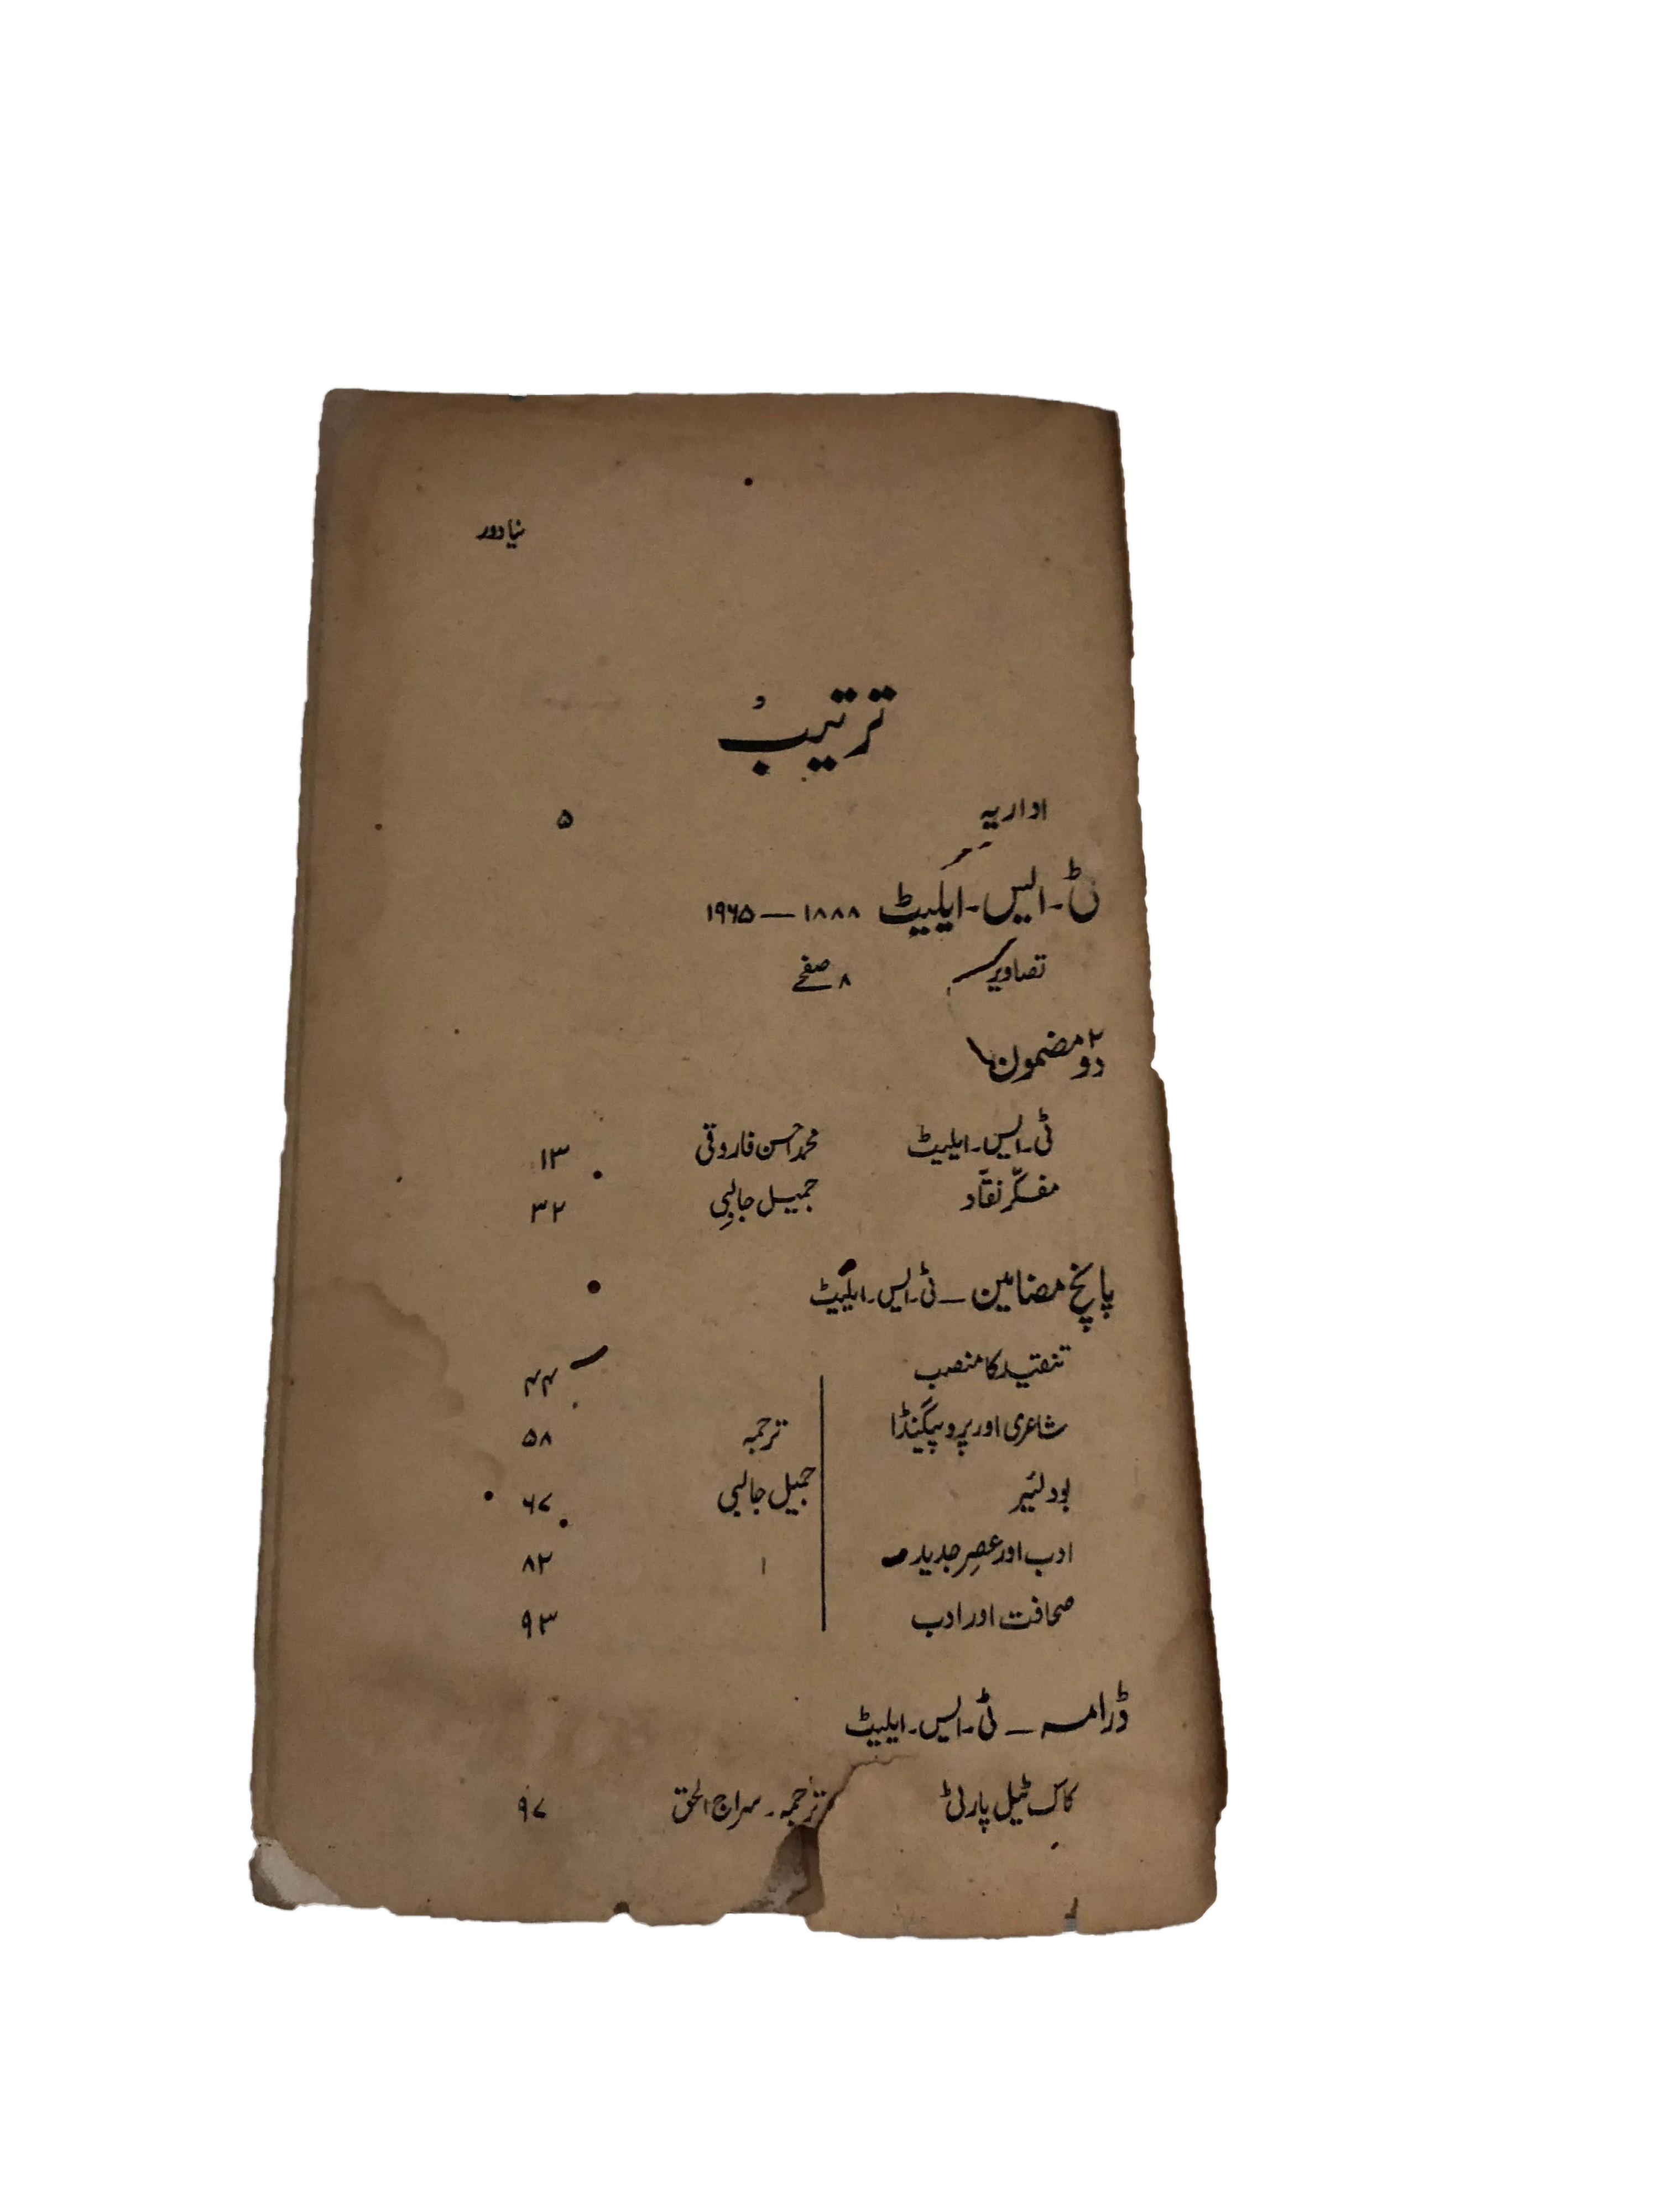 نیا دور
ترتیب
اداریہ ۵
ٹی۔ایس۔ایلیٹ ۱۸۸۸—۱۹۶۵
تصاویر ۸ صفحے
دو۲ مضمون
ٹی۔ایس۔ایلیٹ محمد احسن فاروقی ۱۳
مفکّر نقّاد جمیل جالبی ۳۲
پانچ مضامین — ٹی۔ایس۔ایلیٹ
تنقید کا منصب ۴۴
شاعری اور پروپیگنڈا ترجمہ ۵۸
بودلئیر جمیل جالبی ۶۷
ادب اور عصرِ جدید ۸۲
صحافت اور ادب ۹۳
ڈرامہ — ٹی۔ایس۔ایلیٹ
کاک ٹیل پارٹی ترجمہ۔ سراج الحق ۹۷